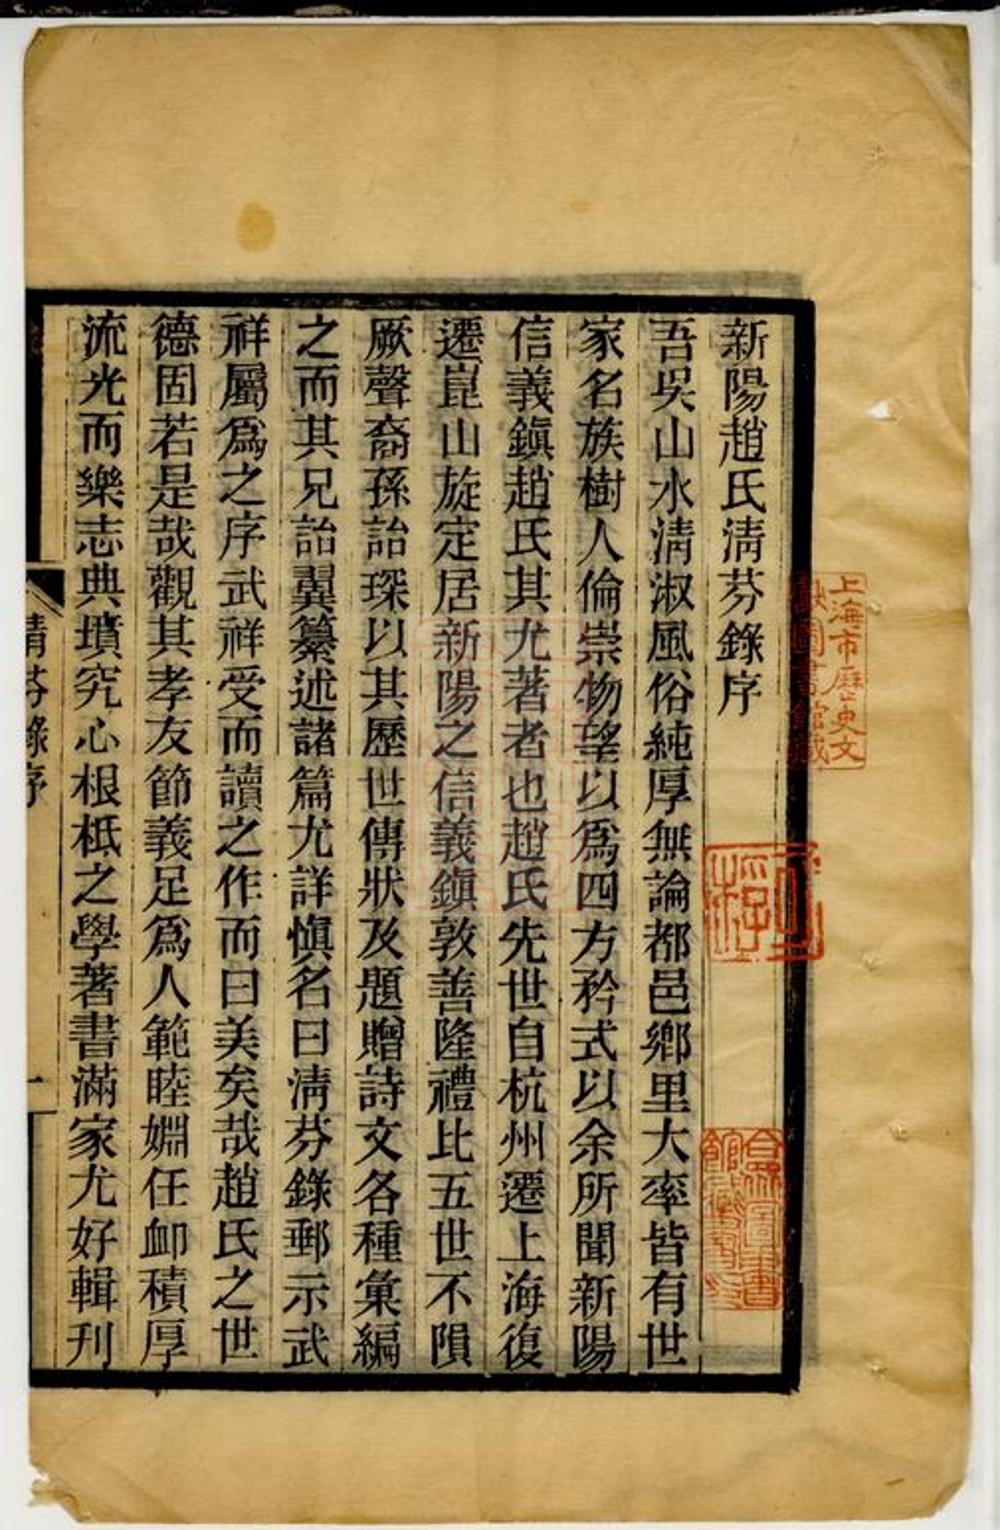 新陽趙氏清芬錄序
吾吳山水清淑風俗純厚無論都邑鄉里大率皆有世
家名族樹人倫崇物望以爲四方矜式以余所聞新陽
信義鎭趙氏其尤著者也趙氏先世自杭州遷上海復
遷崑山旋定居新陽之信義鎭敦善隆禮比五世不隕
厥聲裔孫詒琛以其歷世傳狀及題贈詩文各種彙編
之而其兄詒翼纂述諸篇尤詳愼名曰淸芬錄郵示武
祥屬爲之序武祥受而讀之作而曰美矣哉趙氏之世
德固若是哉觀其孝友節義足爲人範睦婣任卹積厚
流光而樂志典墳究心根柢之學著書滿家尤好輯刊
清芬錄序
一
上海市歷史文
獻圖書館藏